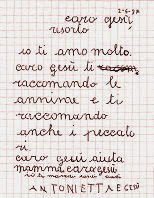 2-6-37
caro gesù
risorto
io ti amo molto.
caro gesù ti
raccomando le
annine e ti
raccomando
anche i peccato
ri
caro gesù aiuta
mamma caro gesù
ANTONIETTA E GESÙ